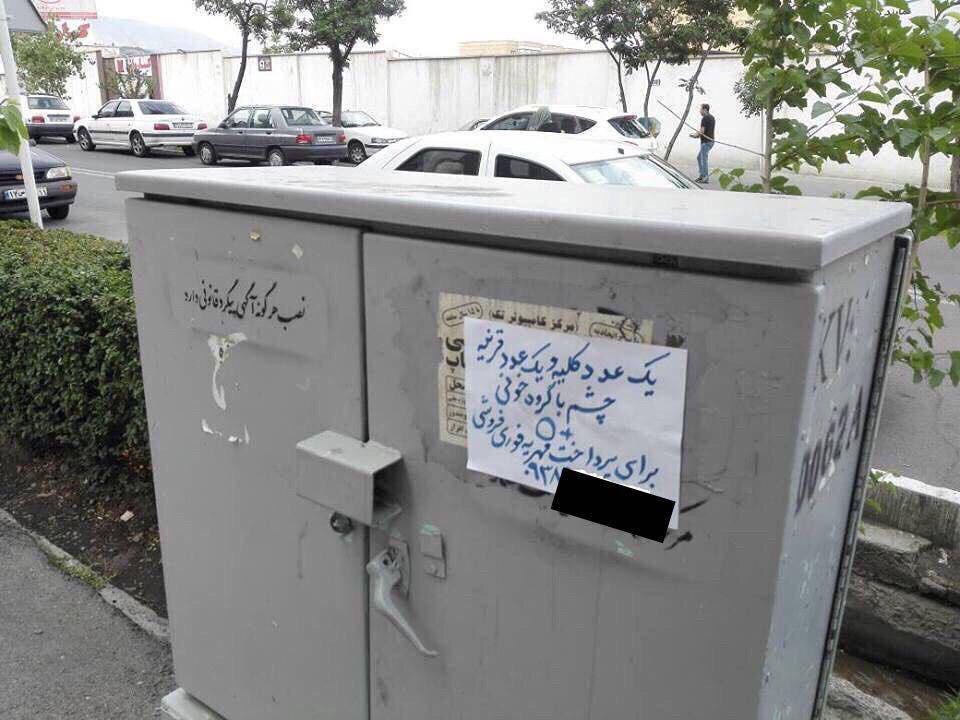 نصب هرگونه آگهی پیگرد قانونی دارد
(مرکز کامپیوتر تک)
یک عدد کلیه و یک عدد قرنیه
چشم با گروه خونی
O+
برای پرداخت مهریه فوری فروشی
۰۹۳۸
KV.
0062A